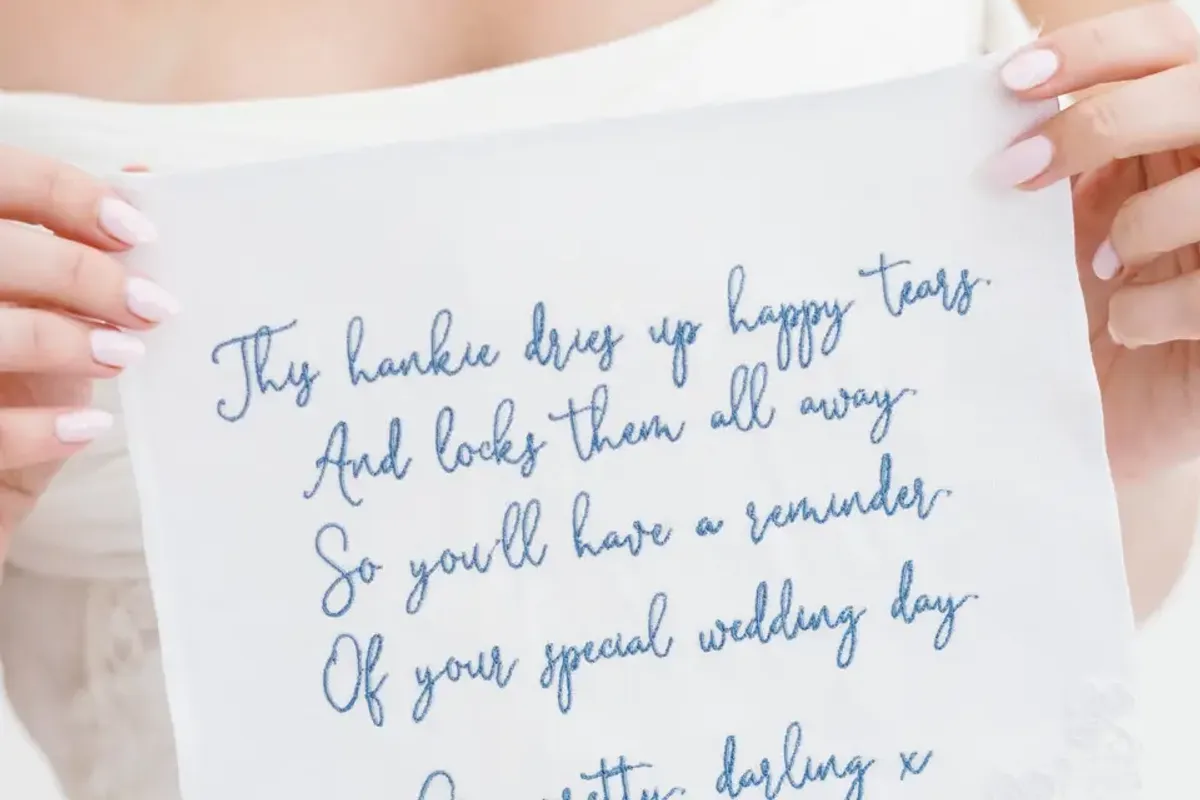 This hankie dries up happy tears
And locks them all away
So you'll have a reminder
Of your special wedding day
pretty darling x